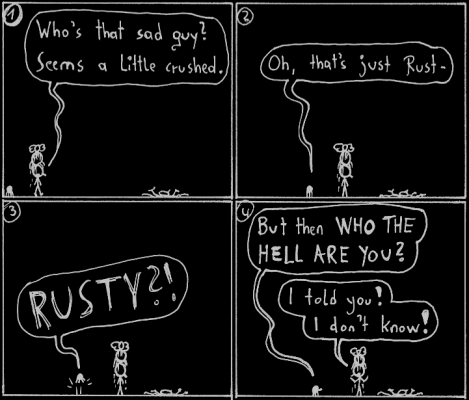 1
Who's that sad guy?
Seems a little crushed.
2
Oh, that's just Rust-
3
RUSTY?!
4
But then WHO THE
HELL ARE YOU?
I told you!
I don't know!